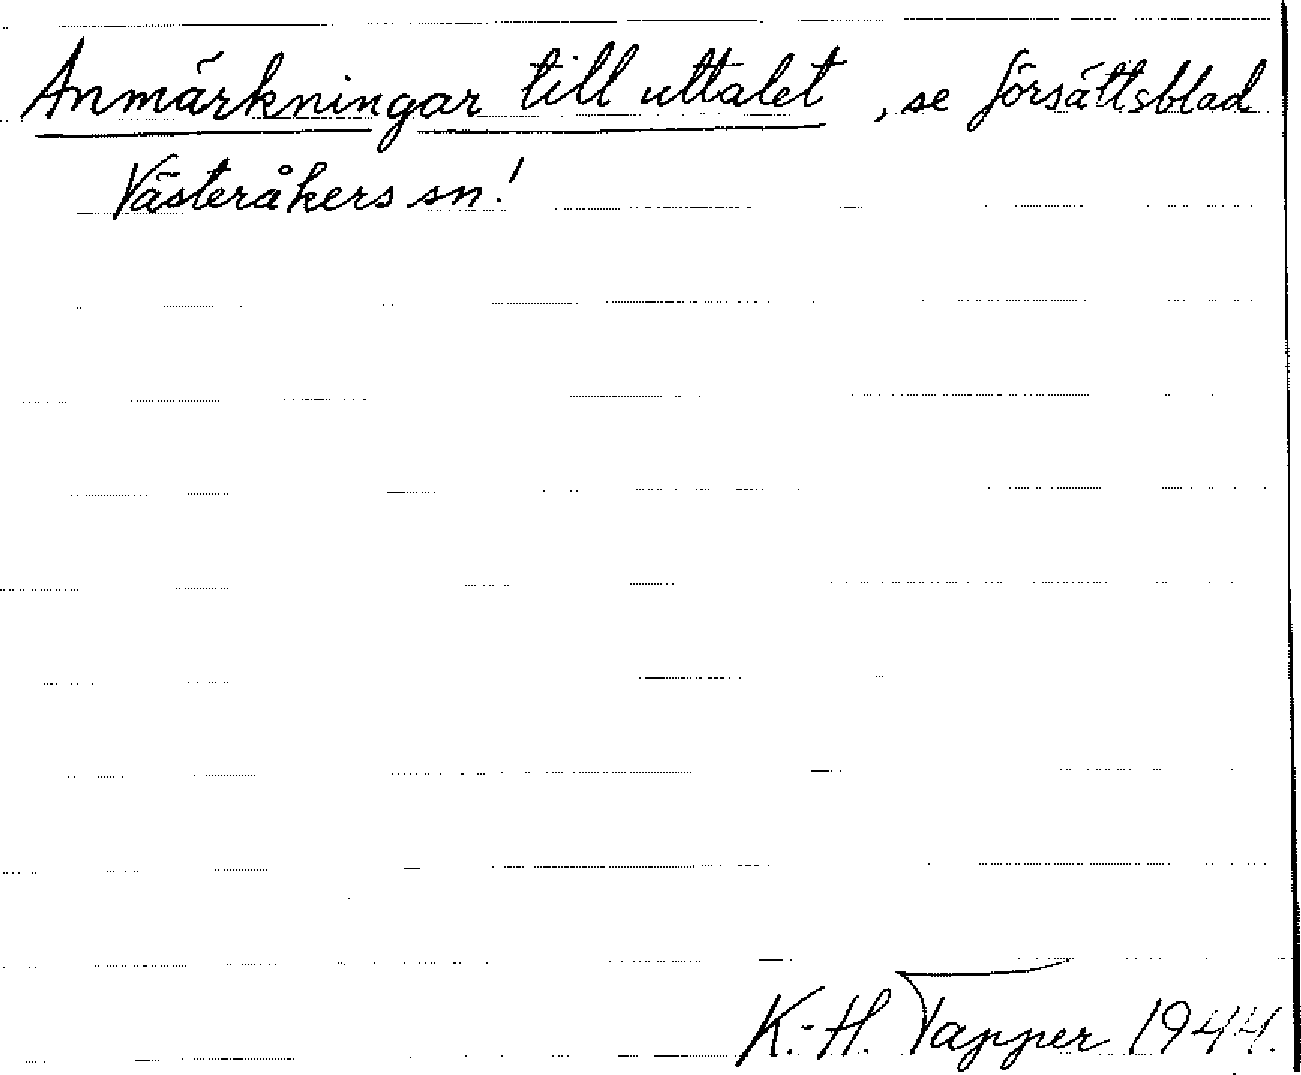 Anmärkningar till uttalet, se försättsblad
Västeråkers sn.!
K.-H. Tapper 1944.